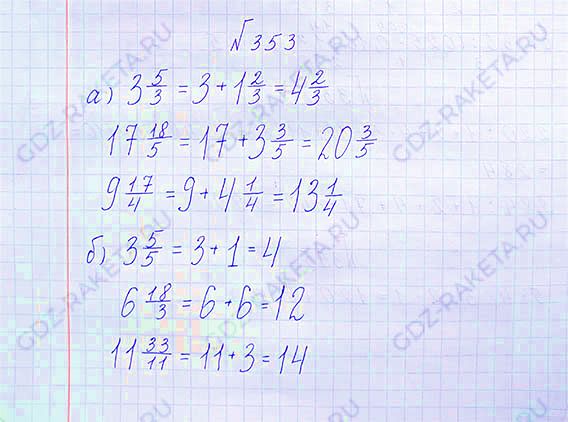 №353
а) 3 5/3 = 3 + 1 2/3 = 4 2/3
17 18/5 = 17 + 3 3/5 = 20 3/5
9 17/4 = 9 + 4 1/4 = 13 1/4
б) 3 5/5 = 3 + 1 = 4
6 18/3 = 6 + 6 = 12
11 33/11 = 11 + 3 = 14
GDZ-RAKETA.RU
GDZ-RAKETA.RU
GDZ-RAKETA.RU
GDZ-RAKETA.RU
GDZ-RAKETA.RU
GDZ-RAKETA.RU